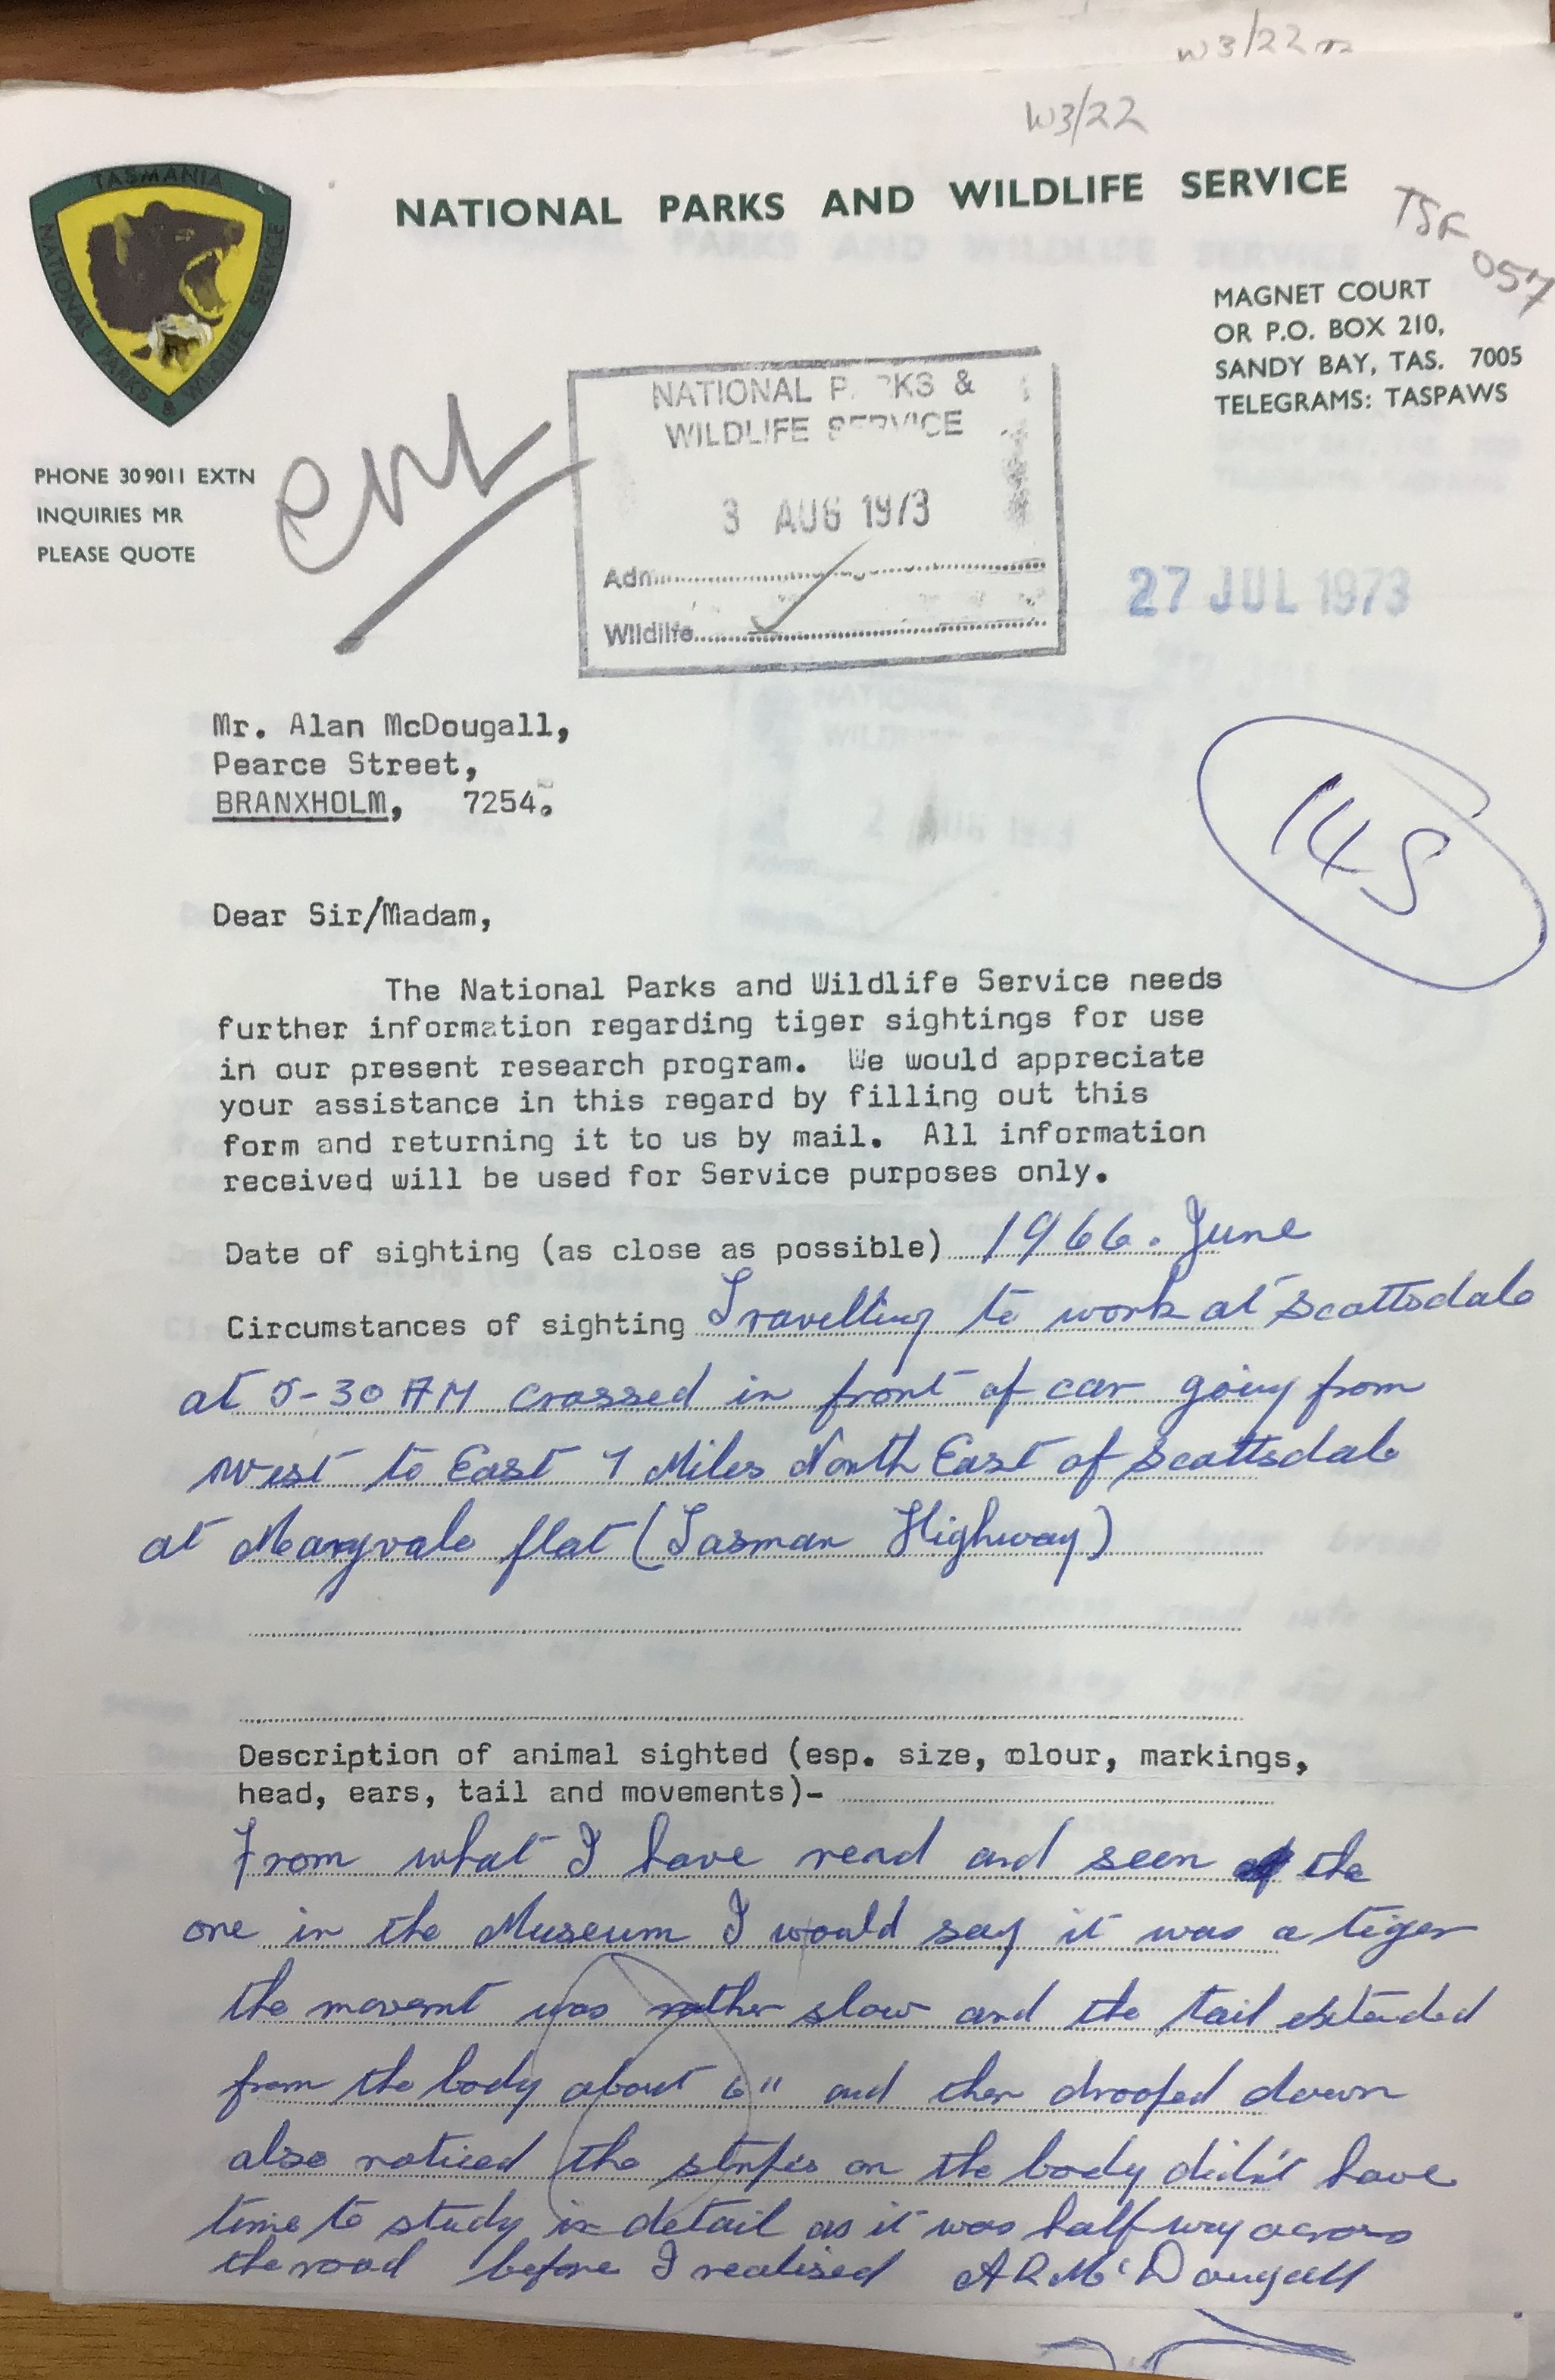 W3/22
W3/22
TASMANIA
NATIONAL PARKS & WILDLIFE SERVICE
NATIONAL PARKS AND WILDLIFE SERVICE
TSF 057
MAGNET COURT
OR P.O. BOX 210,
SANDY BAY, TAS. 7005
TELEGRAMS: TASPAWS
PHONE 30 9011 EXTN
INQUIRIES MR
PLEASE QUOTE
NATIONAL P KS &
WILDLIFE SERVICE
3 AUG 1973
Adm
Wildlife
27 JUL 1973
Mr. Alan McDougall,
Pearce Street,
BRANXHOLM, 7254.
145
Dear Sir/Madam,
The National Parks and Wildlife Service needs
further information regarding tiger sightings for use
in our present research program. We would appreciate
your assistance in this regard by filling out this
form and returning it to us by mail. All information
received will be used for Service purposes only.
Date of sighting (as close as possible) 1966. June
Circumstances of sighting Travelling to work at Scottsdale
at 5-30 AM crossed in front of car going from
west to East 7 Miles North East of Scottsdale
at Maryvale flat (Tasman Highway)
Description of animal sighted (esp. size, olour, markings,
head, ears, tail and movements)-
From what I have read and seen the
one in the Museum I would say it was a tiger
the movemt was rather slow and the tail extended
from the body about 6" and then droofed down
also noticed the stripes on the body didn't have
time to study in detail as it was half way across
the road before I realised A R McDougall